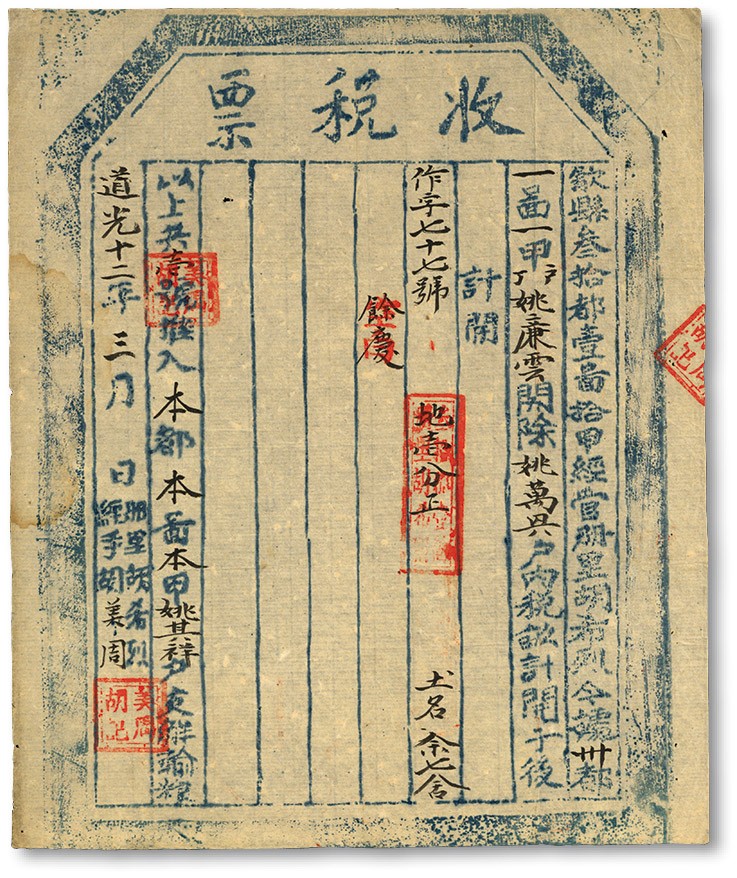 收稅票
歙縣叁拾都壹啚拾甲經管册里胡希烈今據卅都
一啚一甲戶丁姚廉雲開除姚萬興戶內稅訟計開于後
計開
作字七十七號 地壹分正 土名余七舍
餘慶
以上共壹號推入本都本啚本甲姚其祥戶支解輸糧
道光十二年三月 日 册里胡希烈
經手胡美周
美周
胡記